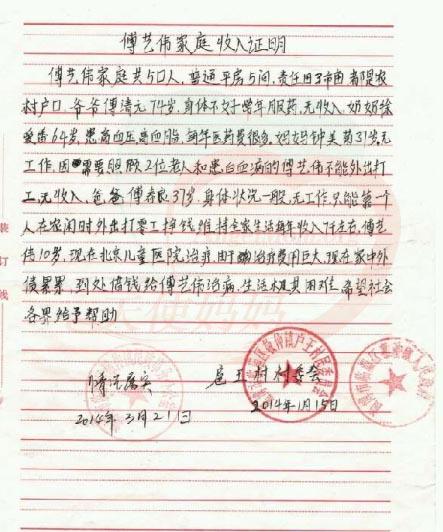 傅艺伟家庭收入证明
傅艺伟家庭共5口人，普通平房5间，责任田3亩 都是农
村户口，爷爷傅清元74岁，身体不好常年服药，无收入，奶奶徐
爱香64岁，患高血压，高血脂，每年医药费很多。妈妈钟美菊31岁无
工作，因需要照顾2位老人和患白血病的傅艺伟不能外出打
工，无收入，爸爸傅春良37岁，身体状况一般，无工作，只能靠一个
人在农闲时外出打零工挣钱，维持全家生活每年收入7仟左右，傅艺
伟10岁，现在北京儿童医院治疗，由于治疗费用巨大，现在家中外
债累累，到处借钱给傅艺伟治病，生活极其困难，希望社会
各界给予帮助
天使妈妈
情况属实
村村委会
2014年3月21日
2014年1月15日
装
订
线